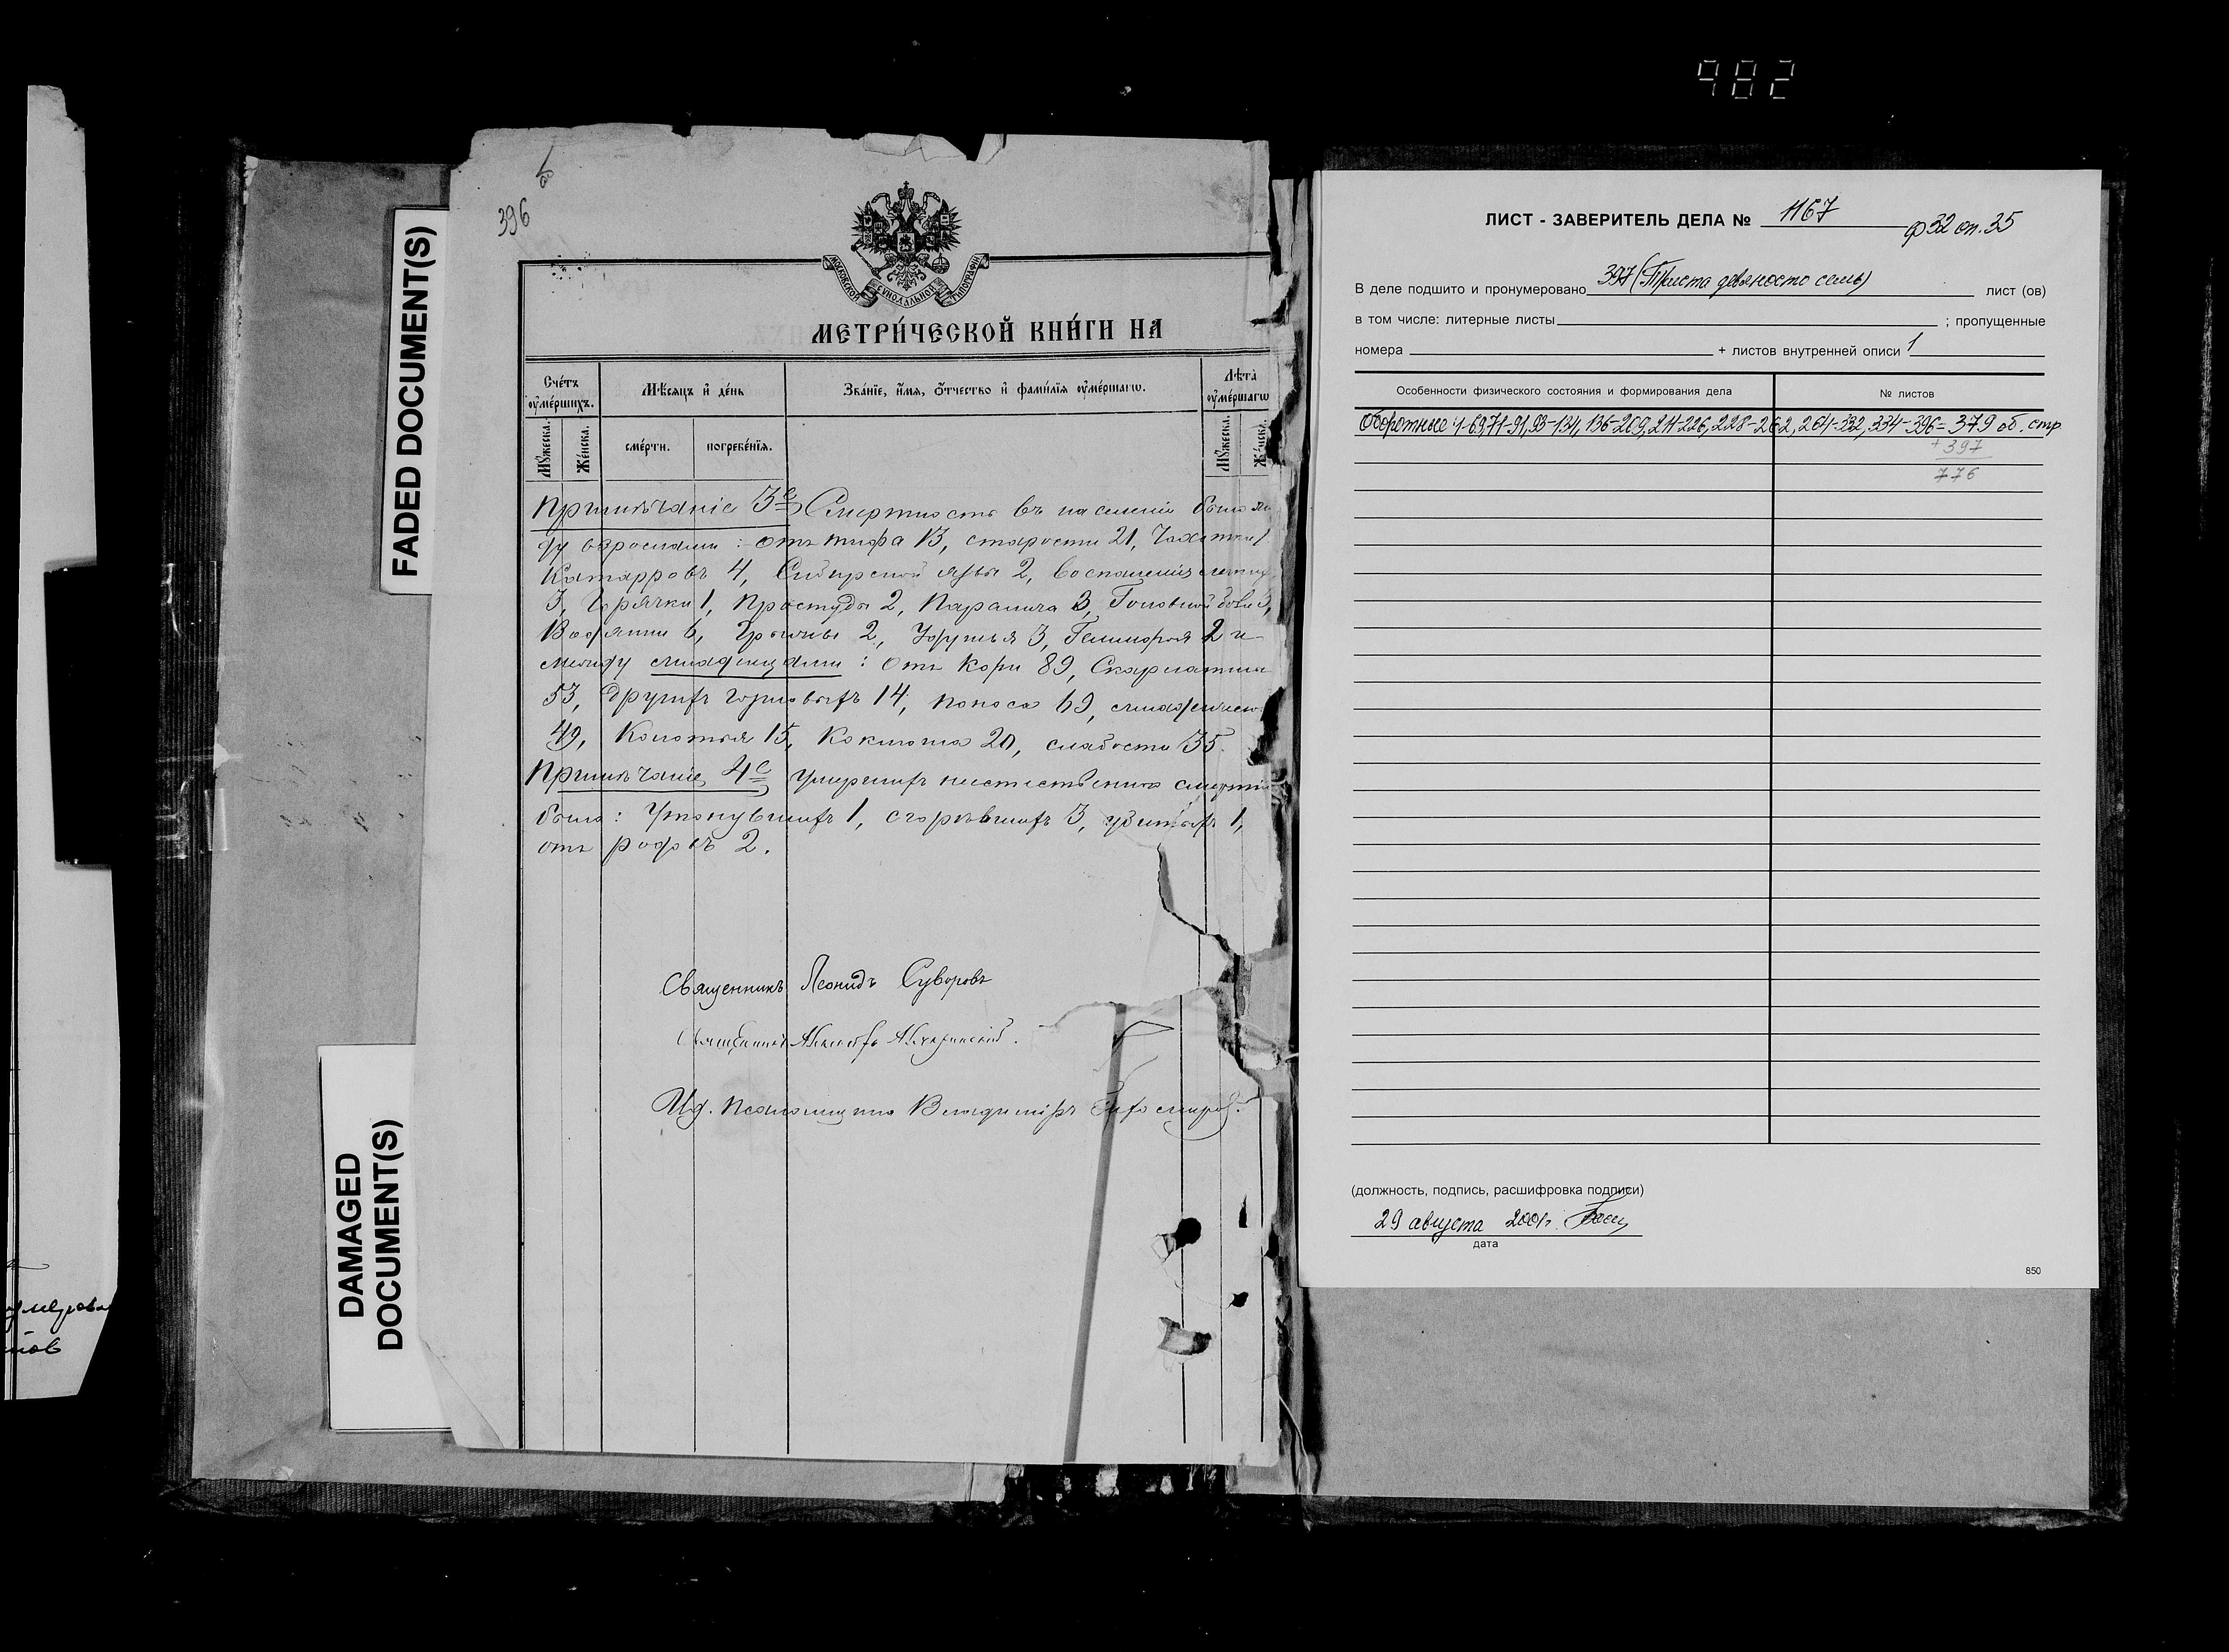 982
FADED DOCUMENT(S)
DAMAGED
DOCUMENT(S)
396
МОСКОВСКОЙ СѴНОДАЛЬНОЙ ТИПОГРАФІИ
МЕТРИ́ЧЕСКОЙ КНИ́ГИ НА
Сче́тъ
оуме́ршихъ.
Мѣ́сяцъ и де́нь
Зва́нїе, и́мя, о́тчество и фами́лїя оуме́ршагѡ.
Лѣта̀
оуме́ршагѡ
Мꙋжеска.
Же́нска.
сме́рти.
погребе́нїя.
Мꙋжеска.
Примѣчаніе 3е Смертность въ населеніи была
взрослыми: отъ тифа 13, старости 21, Чахотки
Катарровъ 4, Сибирской язвы 2, воспаленія
3, Горячки 1, Простуды 2, Паралича 3, Головной боли 3,
Водянки 6, Грыжи 2, Удушья 3, 2 и
между младенцами: отъ Кори 89, Скарлатины
53, Другихъ горловыхъ 14, поноса 69,
49, Колотья 15, Коклюша 20, слабости 35.
Примѣчаніе 4е Умершихъ неестественною смертію
было: Утонувшихъ 1, сгорѣвшихъ 3, убитыхъ 1,
отъ родовъ 2.
Священникъ Леонидъ Суворовъ
Священникъ
И.д. Псаломщика Владиміръ
ЛИСТ - ЗАВЕРИТЕЛЬ ДЕЛА № 1167
ф 32 оп. 35
В деле подшито и пронумеровано 397 (Триста девяносто семь) лист (ов)
в том числе: литерные листы ; пропущенные
номера + листов внутренней описи 1
Особенности физического состояния и формирования дела № листов
Оборотные 4-69,71-91,93-134,136-209,211-226,228-262,264-332,334-396=379 об. стр
+397
776
(должность, подпись, расшифровка подписи)
29 августа 2001г.
дата
850